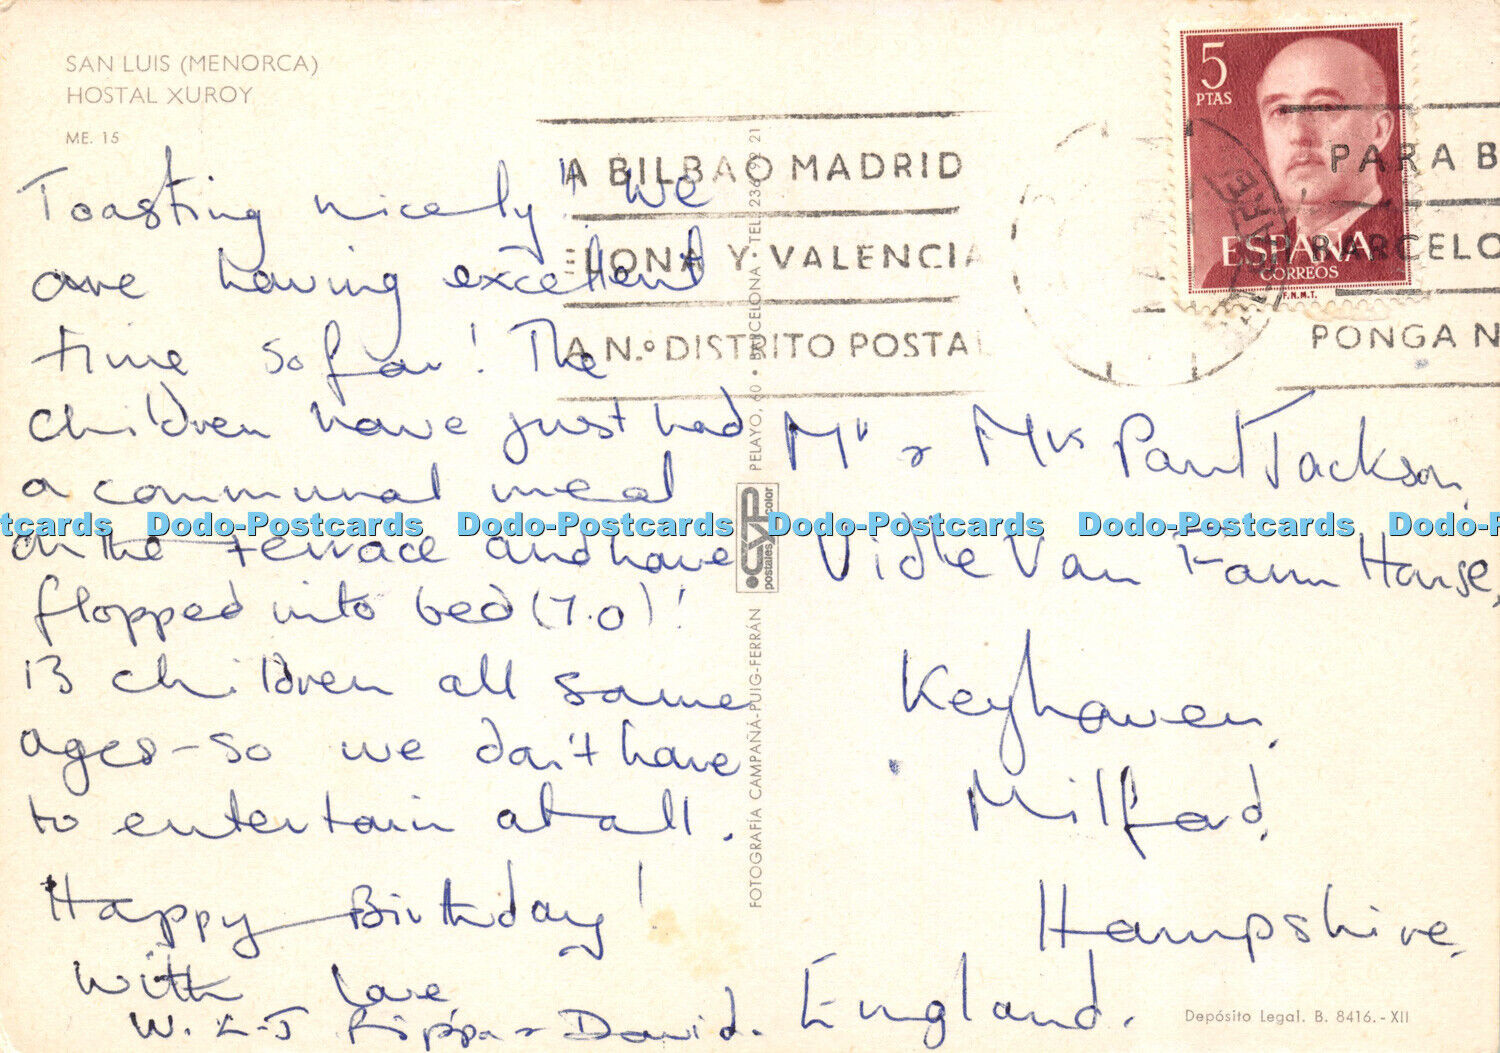 SAN LUIS (MENORCA)
HOSTAL XUROY
ME. 15
Toasting nicely! We
are having excellent
time so far! The
children have just had
a communal meal
on the terrace and have
flopped into bed (7.0)!
13 children all same
ages - so we don't have
to entertain at all.
Happy Birthday!
With love
W. & J Pippa & David.
A BILBAO MADRID
ELONA Y VALENCIA
A N.º DISTRITO POSTAL
5
PTAS
ESPAÑA
CORREOS
F.N.M.T.
PARA B
BARCELO
PONGA N
Mr & Mrs Paul Jackson,
Vidle Van Farm House,
Keyhaven,
Milford,
Hampshire,
England.
FOTOGRAFÍA CAMPAÑÁ-PUIG-FERRÁN
CYP
postales color
PELAYO, 60 • BARCELONA • TEL. 236 92 21
Depósito Legal. B. 8416.-XII
tcards Dodo-Postcards Dodo-Postcards Dodo-Postcards Dodo-Postcards Dodo-P